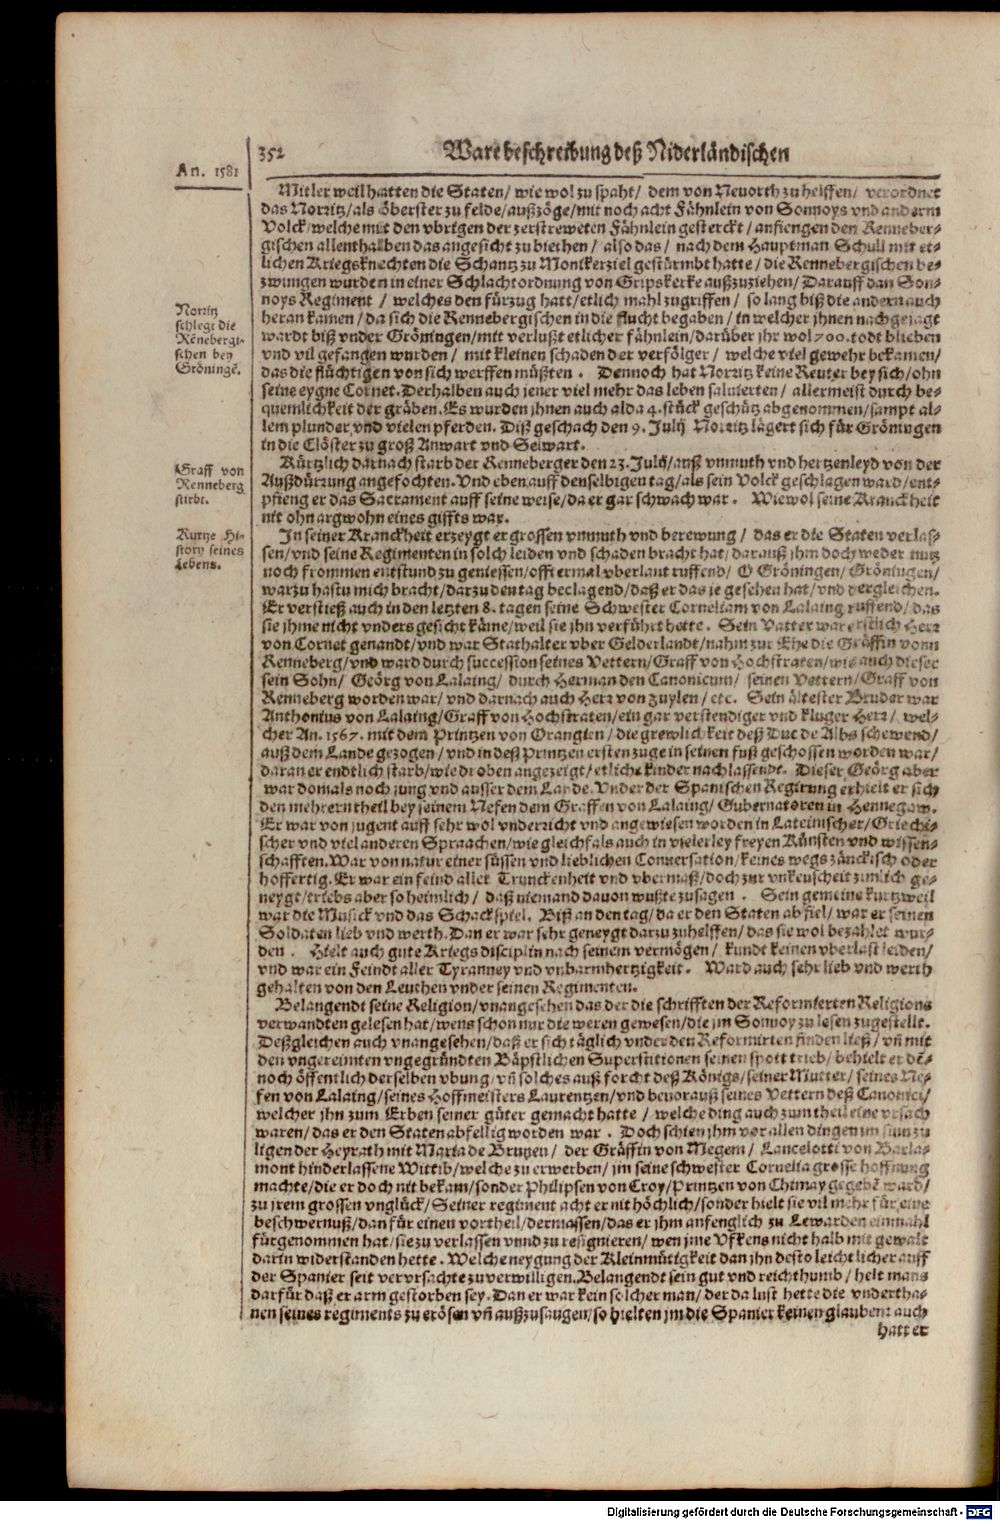 352 Ware beschreibung deß Niderländischen
An. 1581
Mitler weil hatten die Staten/ wie wol zu spaht/ dem von Nevorth zu helffen/ verordnet
das Norritz/als öberster zu felde/außzöge/mit noch acht Fähnlein von Sonnoys vnd anderm
Volck/welche mit den vbrigen der zerstreweten Fähnlein gesterckt/anfiengen den Renneber-
gischen allenthalben das angesicht zu biethen/ also das/ nach dem Hauptman Schull mit et-
lichen Kriegsknechten die Schantz zu Monikerziel gestürmbt hatte/die Rennebergischen be-
zwungen wurden in einer Schlachtordnung von Gripskerke außzuziehen/ Darauff dan Son-
noys Regiment / welches den fürzug hatt/etlich mahl zugriffen / so lang biß die andern auch
heran kamen/da sich die Rennebergischen in die flucht begaben/in welcher jhnen nachgejagt
wardt biß vnder Gröningen/mit verlußt etlicher fähnlein/darüber jhr wol 700. todt blieben
vnd vil gefangen wurden / mit kleinen schaden der verfölger / welche viel gewehr bekamen/
das die flüchtigen von sich werffen müßten. Dennoch hat Norritz keine Reuter bey sich/ohn
seine eygne Cornet. Derhalben auch jener viel mehr das leben saluierten / allermeist durch be-
quemlichkeit der gräben. Es wurden jhnen auch alda 4. stück geschütz abgenommen/sampt al-
lem plunder vnd vielen pferden. Diß geschach den 9. Julij Norritz lägert sich für Gröningen
in die Clöster zu groß Anwart vnd Selwart.
Norritz
schlegt die
Rēnebergi-
schen bey
Gröningē.
Kürtzlich darnach starb der Renneberger den 23. Julij/auß vnmuth vnd hertzenleyd von der
Außdürzung angefochten. Vnd eben auff denselbigen tag/als sein Volck geschlagen ward/ent-
pfieng er das Sacrament auff seine weise/da er gar schwach war. Wiewol seine Kranckheit
nit ohn argwohn eines giffts war.
Graff von
Renneberg
stirbt.
In seiner Kranckheit erzeygt er grossen vnmuth vnd berewung / das er die Staten verlas-
sen/vnd seine Regimenten in solch leiden vnd schaden bracht hat/darauß jhm doch weder nutz
noch frommen entstund zu geniessen/offtermal vberlaut ruffend/ O Gröningen/ Gröningen/
warzu hastu mich bracht/darzu den tag beclagend/daß er das je gesehen hat/vnd dergleichen.
Er verstieß auch in den letzten 8. tagen seine Schwester Corneliam von Lalaing ruffend/ das
sie jhme nicht vnders gesicht käme/weil sie jhn verführt hette. Sein Vatter war erstlich Herr
von Cornet genandt/vnd war Stathalter vber Gelderlandt/nahm zur Ehe die Gräffin vonn
Renneberg/vnd ward durch succession seines Vettern/Graff von Hochstraten/wie auch dieser
sein Sohn/ Geörg von Lalaing/ durch Herman den Canonicum/ seinen Vettern/Graff von
Renneberg worden war/ vnd darnach auch Herr von Zuylen/ etc. Sein ältester Bruder war
Anthonius von Lalaing/Graff von Hochstraten/ein gar verstendiger vnd kluger Herr/ wel-
cher An. 1567. mit dem Printzen von Orangien/ die grewlichkeit deß Duc de Albs schewend/
auß dem Lande gezogen/vnd in deß Printzen ersten zuge in seinen fuß geschossen worden war/
daran er endtlich starb/wie droben angezeigt/etliche kinder nachlassendt. Dieser Geörg aber
war domals noch jung vnd ausser dem Lande. Vnder der Spanischen Regirung erhielt er sich
den mehrern theil bey seinem Nefen dem Graffen von Lalaing/ Gubernatoren in Hennegaw.
Er war von jugent auff sehr wol vnderricht vnd angewiesen worden in Lateinischer/Griechi-
scher vnd viel anderen Spraachen/wie gleichfals auch in vielerley freyen Künsten vnd wissen-
schafften. War von natur einer süssen vnd lieblichen Conuersation/keines wegs zänckisch oder
hoffertig. Er war ein feind aller Trunckenheit vnd vbermaß/doch zur vnkeuscheit zimlich ge-
neygt/triebs aber so heimlich/ daß niemand dauon wußte zusagen. Sein gemeine kurtzweil
war die Musick vnd das Schackspiel. Biß an den tag/da er den Staten abfiel/ war er seinen
Soldaten lieb vnd werth. Dan er war sehr geneygt darzu zuhelffen/das sie wol bezahlet wur-
den. Hielt auch gute Kriegs disciplin nach seinem vermögen/ kundt keinen vberlast leiden/
vnd war ein Feindt aller Tyranney vnd vnbarmhertzigkeit. Ward auch sehr lieb vnd werth
gehalten von den Leuthen vnder seinen Regimenten.
Kurtze Hi-
story seines
Lebens.
Belangendt seine Religion/vnangesehen das der die schrifften der Reformierten Religions
verwandten gelesen hat/wens schon nur die weren gewesen/die jm Sonnoy zu lesen zugestellt.
Deßgleichen auch vnangesehen/daß er sich täglich vnder den Reformirten finden ließ/ vñ mit
den vngereimten vngegründten Bäpstlichen Superstitionen seinen spott trieb/ behielt er dē-
noch öffentlich derselben vbung/vñ solches auß forcht deß Königs/seiner Mutter/ seines Ne-
fen von Lalaing/seines Hoffmeisters Laurentzen/vnd beuorauß seines Vettern deß Canonici/
welcher jhn zum Erben seiner güter gemacht hatte / welche ding auch zum theil eine vrsach
waren/das er den Staten abfellig worden war. Doch schien jhm vor allen dingen im sinn zu
ligen der Heyrath mit Maria de Bruyen/ der Gräffin von Megem/ Lancelotti von Barla-
mont hinderlassene Wittib/welche zu erwerben/ jm seine schwester Cornelia grosse hoffnung
machte/die er doch nit bekam/sonder Philipsen von Croy/Printzen von Chimay gegebē ward/
zu jrem grossen vnglück/Seiner regiment acht er nit höchlich/sonder hielt sie vil mehr für eine
beschwernuß/dan für einen vortheil/dermassen/das er jhm anfenglich zu Lewarden einmahl
fürgenommen hat/sie zu verlassen vnnd zu resignieren/wen jme Vfkens nicht halb mit gewalt
darin widerstanden hette. Welche neygung der Kleinmütigkeit dan jhn desto leichtlicher auff
der Spanier seit vervrsachte zu verwilligen. Belangendt sein gut vnd reichthumb / helt mans
darfür daß er arm gestorben sey. Dan er war kein solcher man/der da lust hette die vndertha-
nen seines regiments zu erösen vñ außzusaugen/so hielten jm die Spanier keinen glauben: auch
hatt er
Digitalisierung gefördert durch die Deutsche Forschungsgemeinschaft - DFG